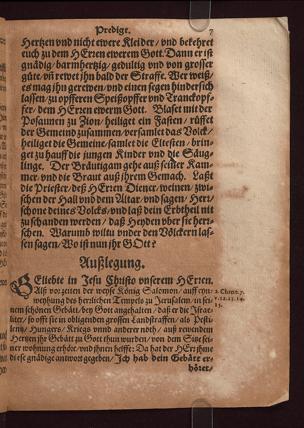 Predigt. 7
Hertzen vnd nicht ewere Kleider/ vnd bekehret
euch zu dem HErren ewerem Gott. Dann er ist
gnädig/ barmhertzig/ gedultig vnd von grosser
güte/ vñ rewet jhn bald der Straffe. Wer weiß/
es mag jhn gerewen/ vnd einen segen hinder sich
lassen/ zu opfferen Speißopffer vnd Tranckopf-
fer/ dem HErren ewerm Gott. Blaset mit der
Posaunen zu Zion/ heiliget ein Fasten/ rüffet
der Gemeind zusammen/ versamlet das Volck/
heiliget die Gemeine/ samlet die Eltesten/ brin-
get zu hauff die jungen Kinder vnd die Säug-
linge. Der Bräutigam gehe auß seiner Kam-
mer/ vnd die Braut auß jhrem Gemach. Laßt
die Priester/ deß HErren Diener/ weinen/ zwi-
schen der Hall vnd dem Altar/ vnd sagen/ Herr/
schone deines Volcks/ vnd laß dein Erbtheil nit
zu schanden werden/ daß Heyden vber sie herr-
schen. Warumb wiltu vnder den Völckern las-
sen sagen/ Wo ist nun jhr GOtt?
Außlegung.
GEliebte in Jesu Christo vnserem HErren.
Als vorzeiten der weyse König Salomon/ auff eyn-
weyhung des herlichen Tempels zu Jerusalem/ in sei-
nem schönen Gebätt/ bey Gott angehalten/ daß er die Israe-
liten/ so offt sie in obligenden grossen Landstraffen/ als Pesti-
lentz/ Hungers/ Kriegs vnnd anderer noth/ auß rewendem
Hertzen jhr Gebätt zu Gott thun wurden/ von dem Sitz sei-
ner wohnung erhöre/ vnd jhnen helffe: Da hat der HErr jhme
diese gnädige antwort gegeben/ Ich hab dein Gebätt er-
höret/
2. Chron. 7.
v. 12. 13. 14.
15.